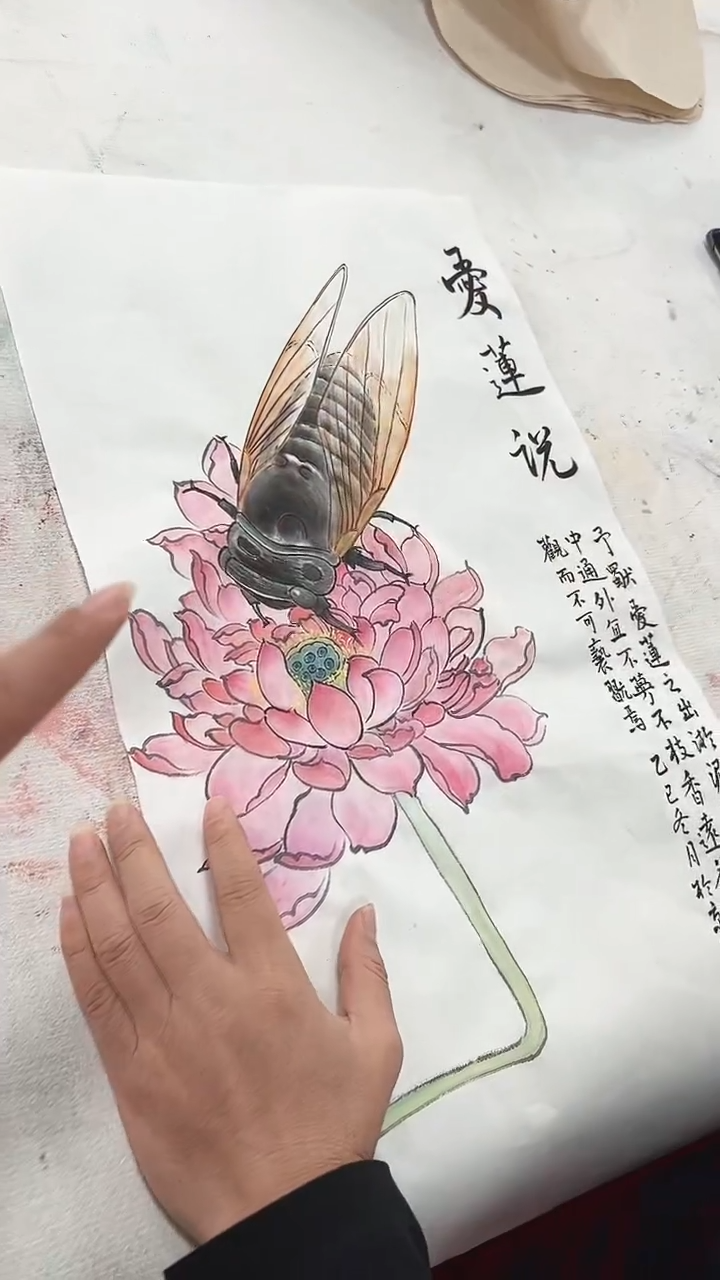 愛蓮说
予獨愛蓮之出淤泥
中通外直不蔓不枝香遠
觀而不可褻翫焉 乙巳冬月於京